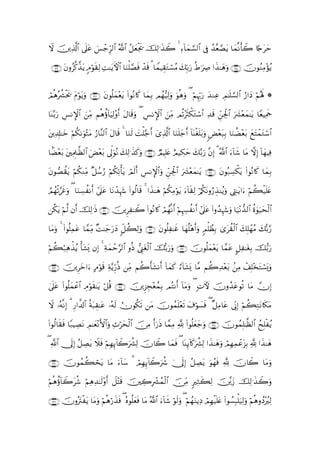 حَرَجًا كَأَنَّمَا يَصَّعَّدُ فِي ٱلسَّمَآءِ ۚ كَذَٰلِكَ يَجْعَلُ ٱللَّهُ ٱلرِّجْسَ عَلَى ٱلَّذِينَ لَا
يُؤْمِنُونَ ١٢٥ وَهَٰذَا صِرَٰطُ رَبِّكَ مُسْتَقِيمًا ۗ قَدْ فَصَّلْنَا ٱلْءَايَٰتِ لِقَوْمٍ يَذَّكَّرُونَ ١٢٦
۞ لَهُمْ دَارُ ٱلسَّلَٰمِ عِندَ رَبِّهِمْ ۖ وَهُوَ وَلِيُّهُم بِمَا كَانُوا۟ يَعْمَلُونَ ١٢٧ وَيَوْمَ يَحْشُرُهُمْ
جَمِيعًا يَٰمَعْشَرَ ٱلْجِنِّ قَدِ ٱسْتَكْثَرْتُم مِّنَ ٱلْإِنسِ ۖ وَقَالَ أَوْلِيَآؤُهُم مِّنَ ٱلْإِنسِ رَبَّنَا
ٱسْتَمْتَعَ بَعْضُنَا بِبَعْضٍ وَبَلَغْنَآ أَجَلَنَا ٱلَّذِىٓ أَجَّلْتَ لَنَا ۚ قَالَ ٱلنَّارُ مَثْوَىٰكُمْ خَٰلِدِينَ
فِيهَآ إِلَّا مَا شَآءَ ٱللَّهُ ۗ إِنَّ رَبَّكَ حَكِيمٌ عَلِيمٌ ١٢٨ وَكَذَٰلِكَ نُوَلِّى بَعْضَ ٱلظَّٰلِمِينَ بَعْضًۢا
بِمَا كَانُوا۟ يَكْسِبُونَ ١٢٩ يَٰمَعْشَرَ ٱلْجِنِّ وَٱلْإِنسِ أَلَمْ يَأْتِكُمْ رُسُلٌ مِّنكُمْ يَقُصُّونَ
عَلَيْكُمْ ءَايَٰتِى وَيُنذِرُونَكُمْ لِقَآءَ يَوْمِكُمْ هَٰذَا ۚ قَالُوا۟ شَهِدْنَا عَلَىٰٓ أَنفُسِنَا ۖ وَغَرَّتْهُمُ
ٱلْحَيَوٰةُ ٱلدُّنْيَا وَشَهِدُوا۟ عَلَىٰٓ أَنفُسِهِمْ أَنَّهُمْ كَانُوا۟ كَٰفِرِينَ ١٣٠ ذَٰلِكَ أَن لَّمْ يَكُن
رَّبُّكَ مُهْلِكَ ٱلْقُرَىٰ بِظُلْمٍ وَأَهْلُهَا غَٰفِلُونَ ١٣١ وَلِكُلٍّ دَرَجَٰتٌ مِّمَّا عَمِلُوا۟ ۚ وَمَا
رَبُّكَ بِغَٰفِلٍ عَمَّا يَعْمَلُونَ ١٣٢ وَرَبُّكَ ٱلْغَنِىُّ ذُو ٱلرَّحْمَةِ ۚ إِن يَشَأْ يُذْهِبْكُمْ
وَيَسْتَخْلِفْ مِنۢ بَعْدِكُم مَّا يَشَآءُ كَمَآ أَنشَأَكُم مِّن ذُرِّيَّةِ قَوْمٍ ءَاخَرِينَ ١٣٣
إِنَّ مَا تُوعَدُونَ لَءَاتٍ ۖ وَمَآ أَنتُم بِمُعْجِزِينَ ١٣٤ قُلْ يَٰقَوْمِ ٱعْمَلُوا۟ عَلَىٰ
مَكَانَتِكُمْ إِنِّى عَامِلٌ ۖ فَسَوْفَ تَعْلَمُونَ مَن تَكُونُ لَهُۥ عَٰقِبَةُ ٱلدَّارِ ۗ إِنَّهُۥ لَا
يُفْلِحُ ٱلظَّٰلِمُونَ ١٣٥ وَجَعَلُوا۟ لِلَّهِ مِمَّا ذَرَأَ مِنَ ٱلْحَرْثِ وَٱلْأَنْعَٰمِ نَصِيبًا فَقَالُوا۟
هَٰذَا لِلَّهِ بِزَعْمِهِمْ وَهَٰذَا لِشُرَكَآئِنَا ۖ فَمَا كَانَ لِشُرَكَآئِهِمْ فَلَا يَصِلُ إِلَى ٱللَّهِ ۖ
وَمَا كَانَ لِلَّهِ فَهُوَ يَصِلُ إِلَىٰ شُرَكَآئِهِمْ ۗ سَآءَ مَا يَحْكُمُونَ ١٣٦
وَكَذَٰلِكَ زَيَّنَ لِكَثِيرٍ مِّنَ ٱلْمُشْرِكِينَ قَتْلَ أَوْلَٰدِهِمْ شُرَكَآؤُهُمْ
لِيُرْدُوهُمْ وَلِيَلْبِسُوا۟ عَلَيْهِمْ دِينَهُمْ ۖ وَلَوْ شَآءَ ٱللَّهُ مَا فَعَلُوهُ ۖ فَذَرْهُمْ وَمَا يَفْتَرُونَ ١٣٧